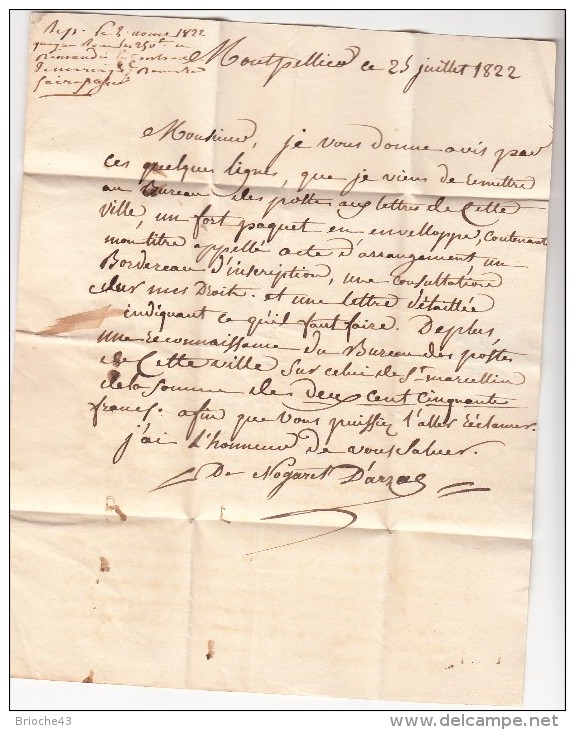 Rep. le 2 aout 1822
250
faire passer
Montpellier ce 25 juillet 1822
Monsieur, je vous donne avis par
ces quelques lignes, que je viens de Remettre
au Bureau des postes aux lettres de Cette
ville, un fort paquet en envelloppe, contenant
mon titre appellé acte d'arrangement, un
Bordereau d'inscription, une consultation
sur mes Droits. et une lettre détaillée
indiquant ce qu'il faut faire. De plus,
une reconnaissance du Bureau des postes
de Cette ville sur celui de St marcellin
de la somme de deux cent cinquante
francs. afin que vous puissiez l'aller réclamer.
j'ai L'honneur de vous saluer.
De Nogaret D'arzac
Brioche43
delcampe.net